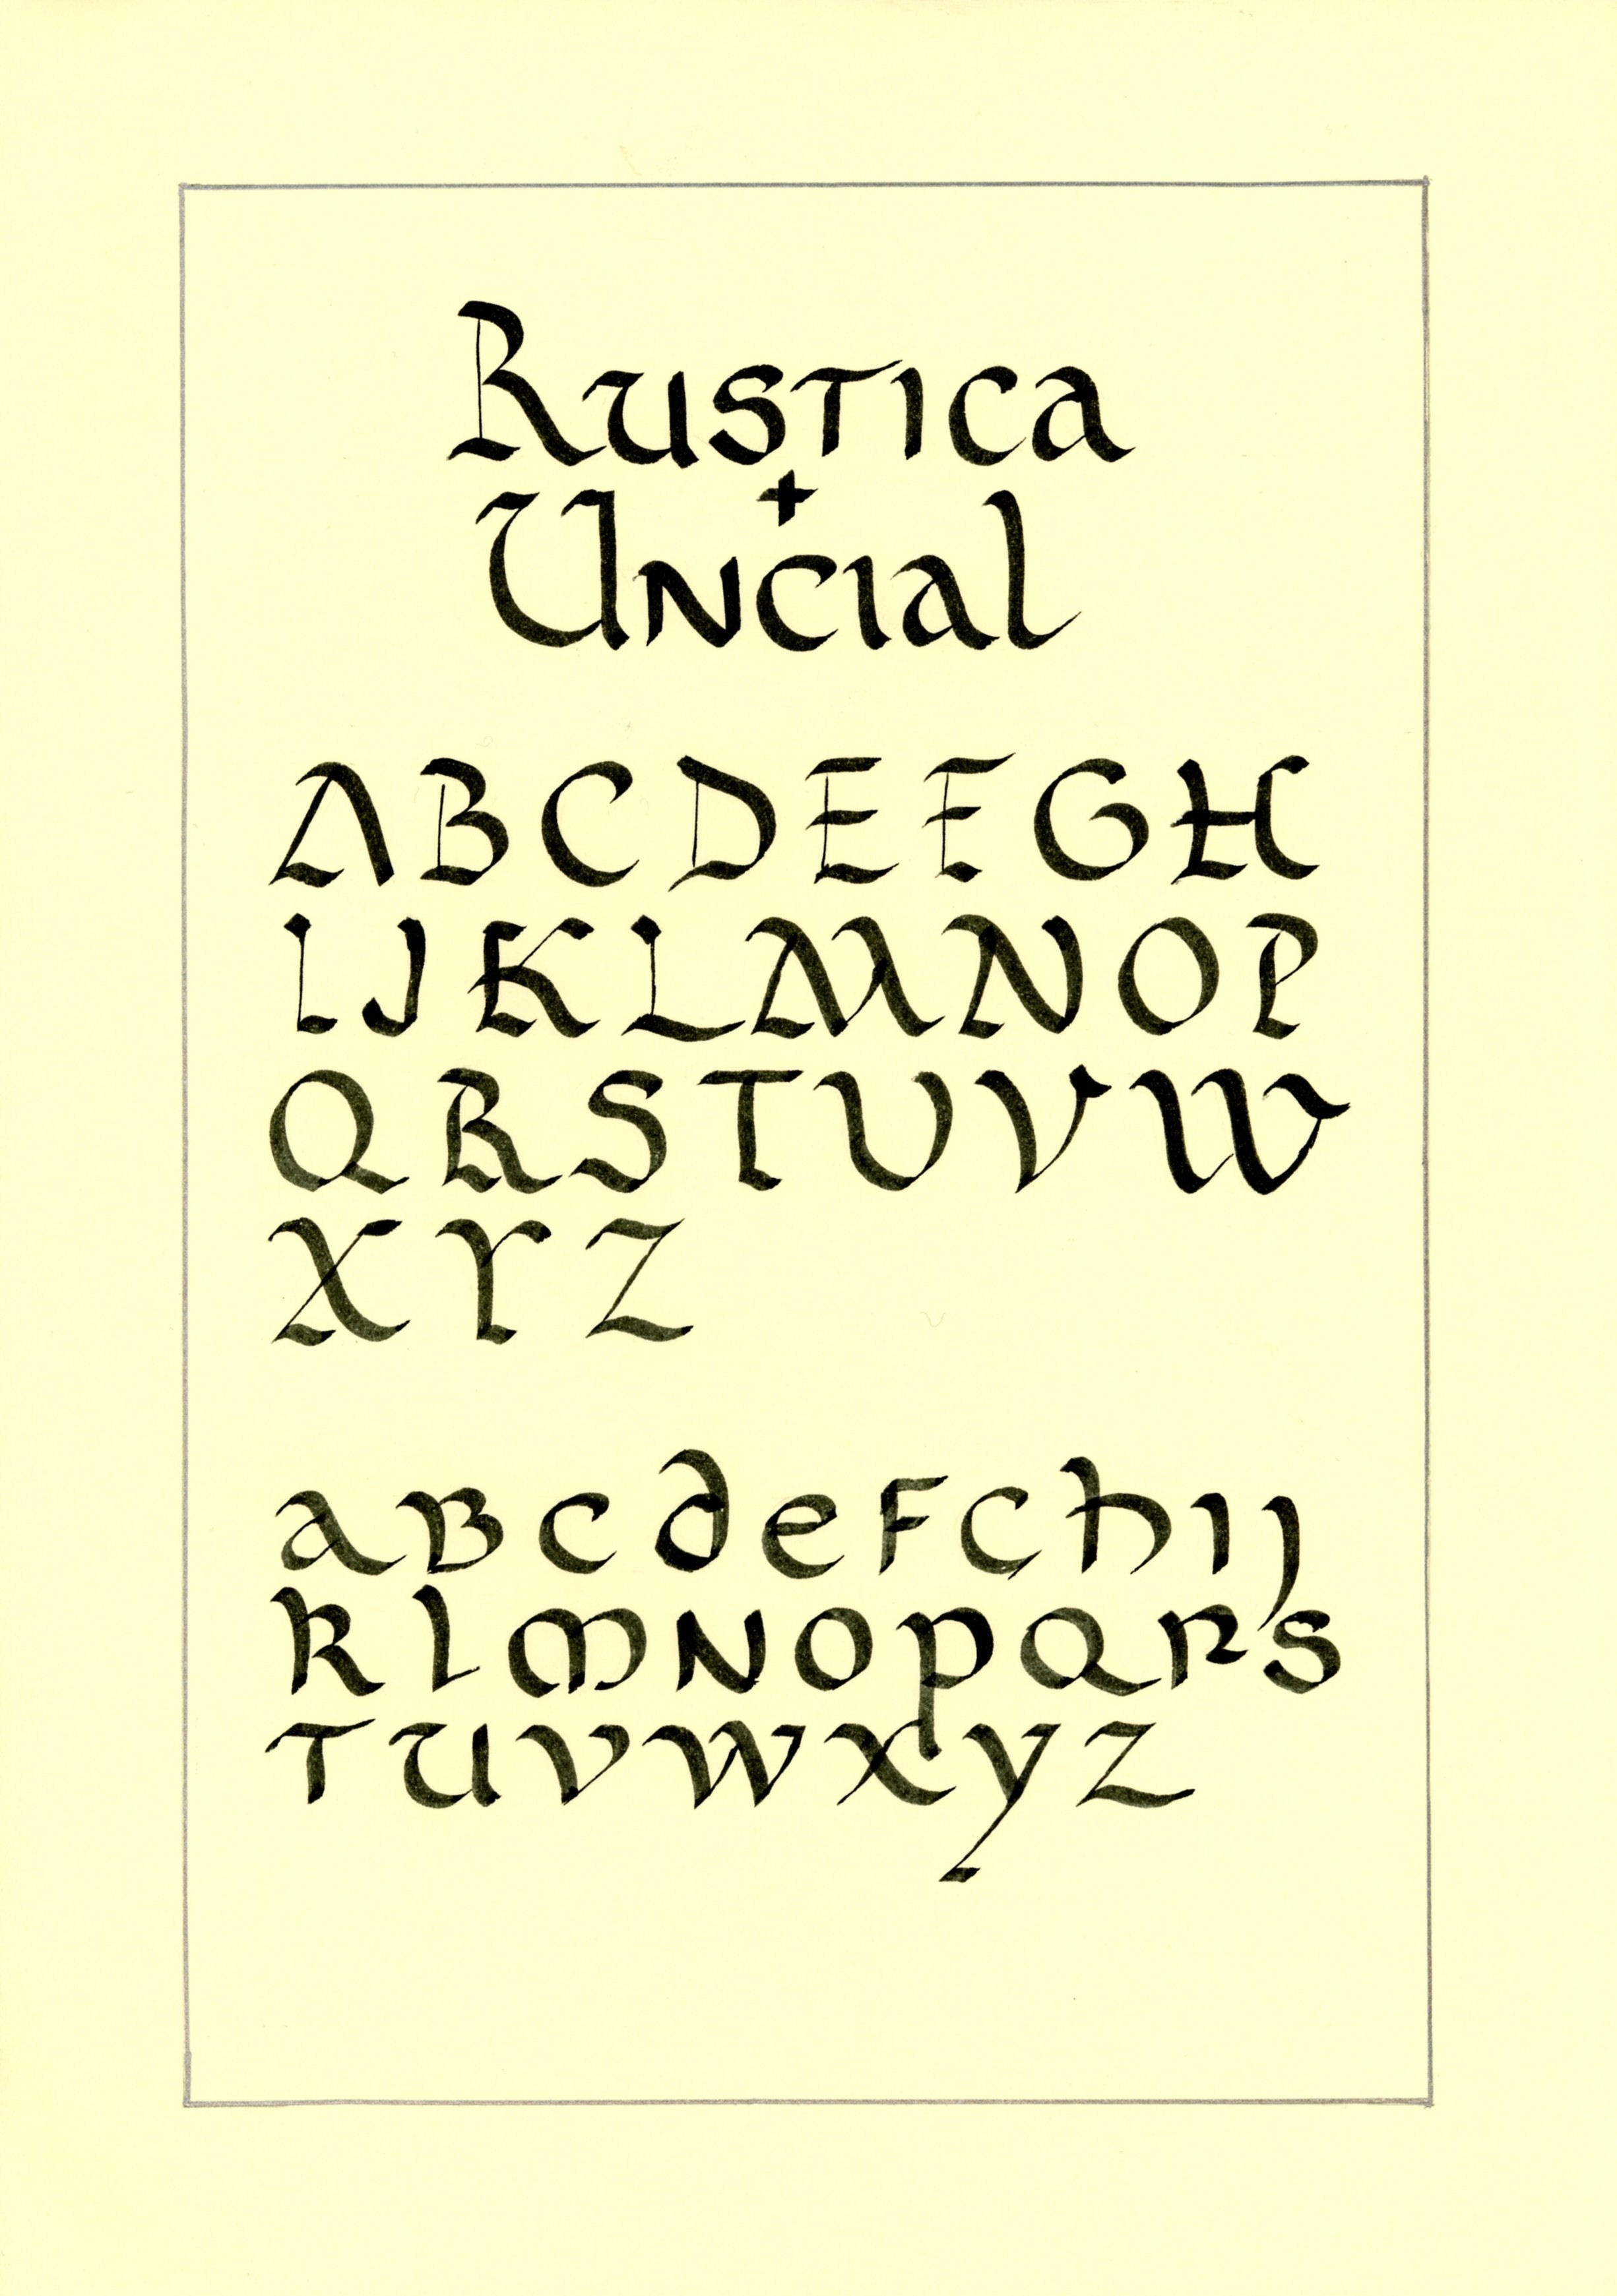 Rustica
+
Uncial
A B C D E F G H
I J K L M N O P
Q R S T U V W
X Y Z
a B c d e F G h i j
k l m N o p q r s
T u v w x y z